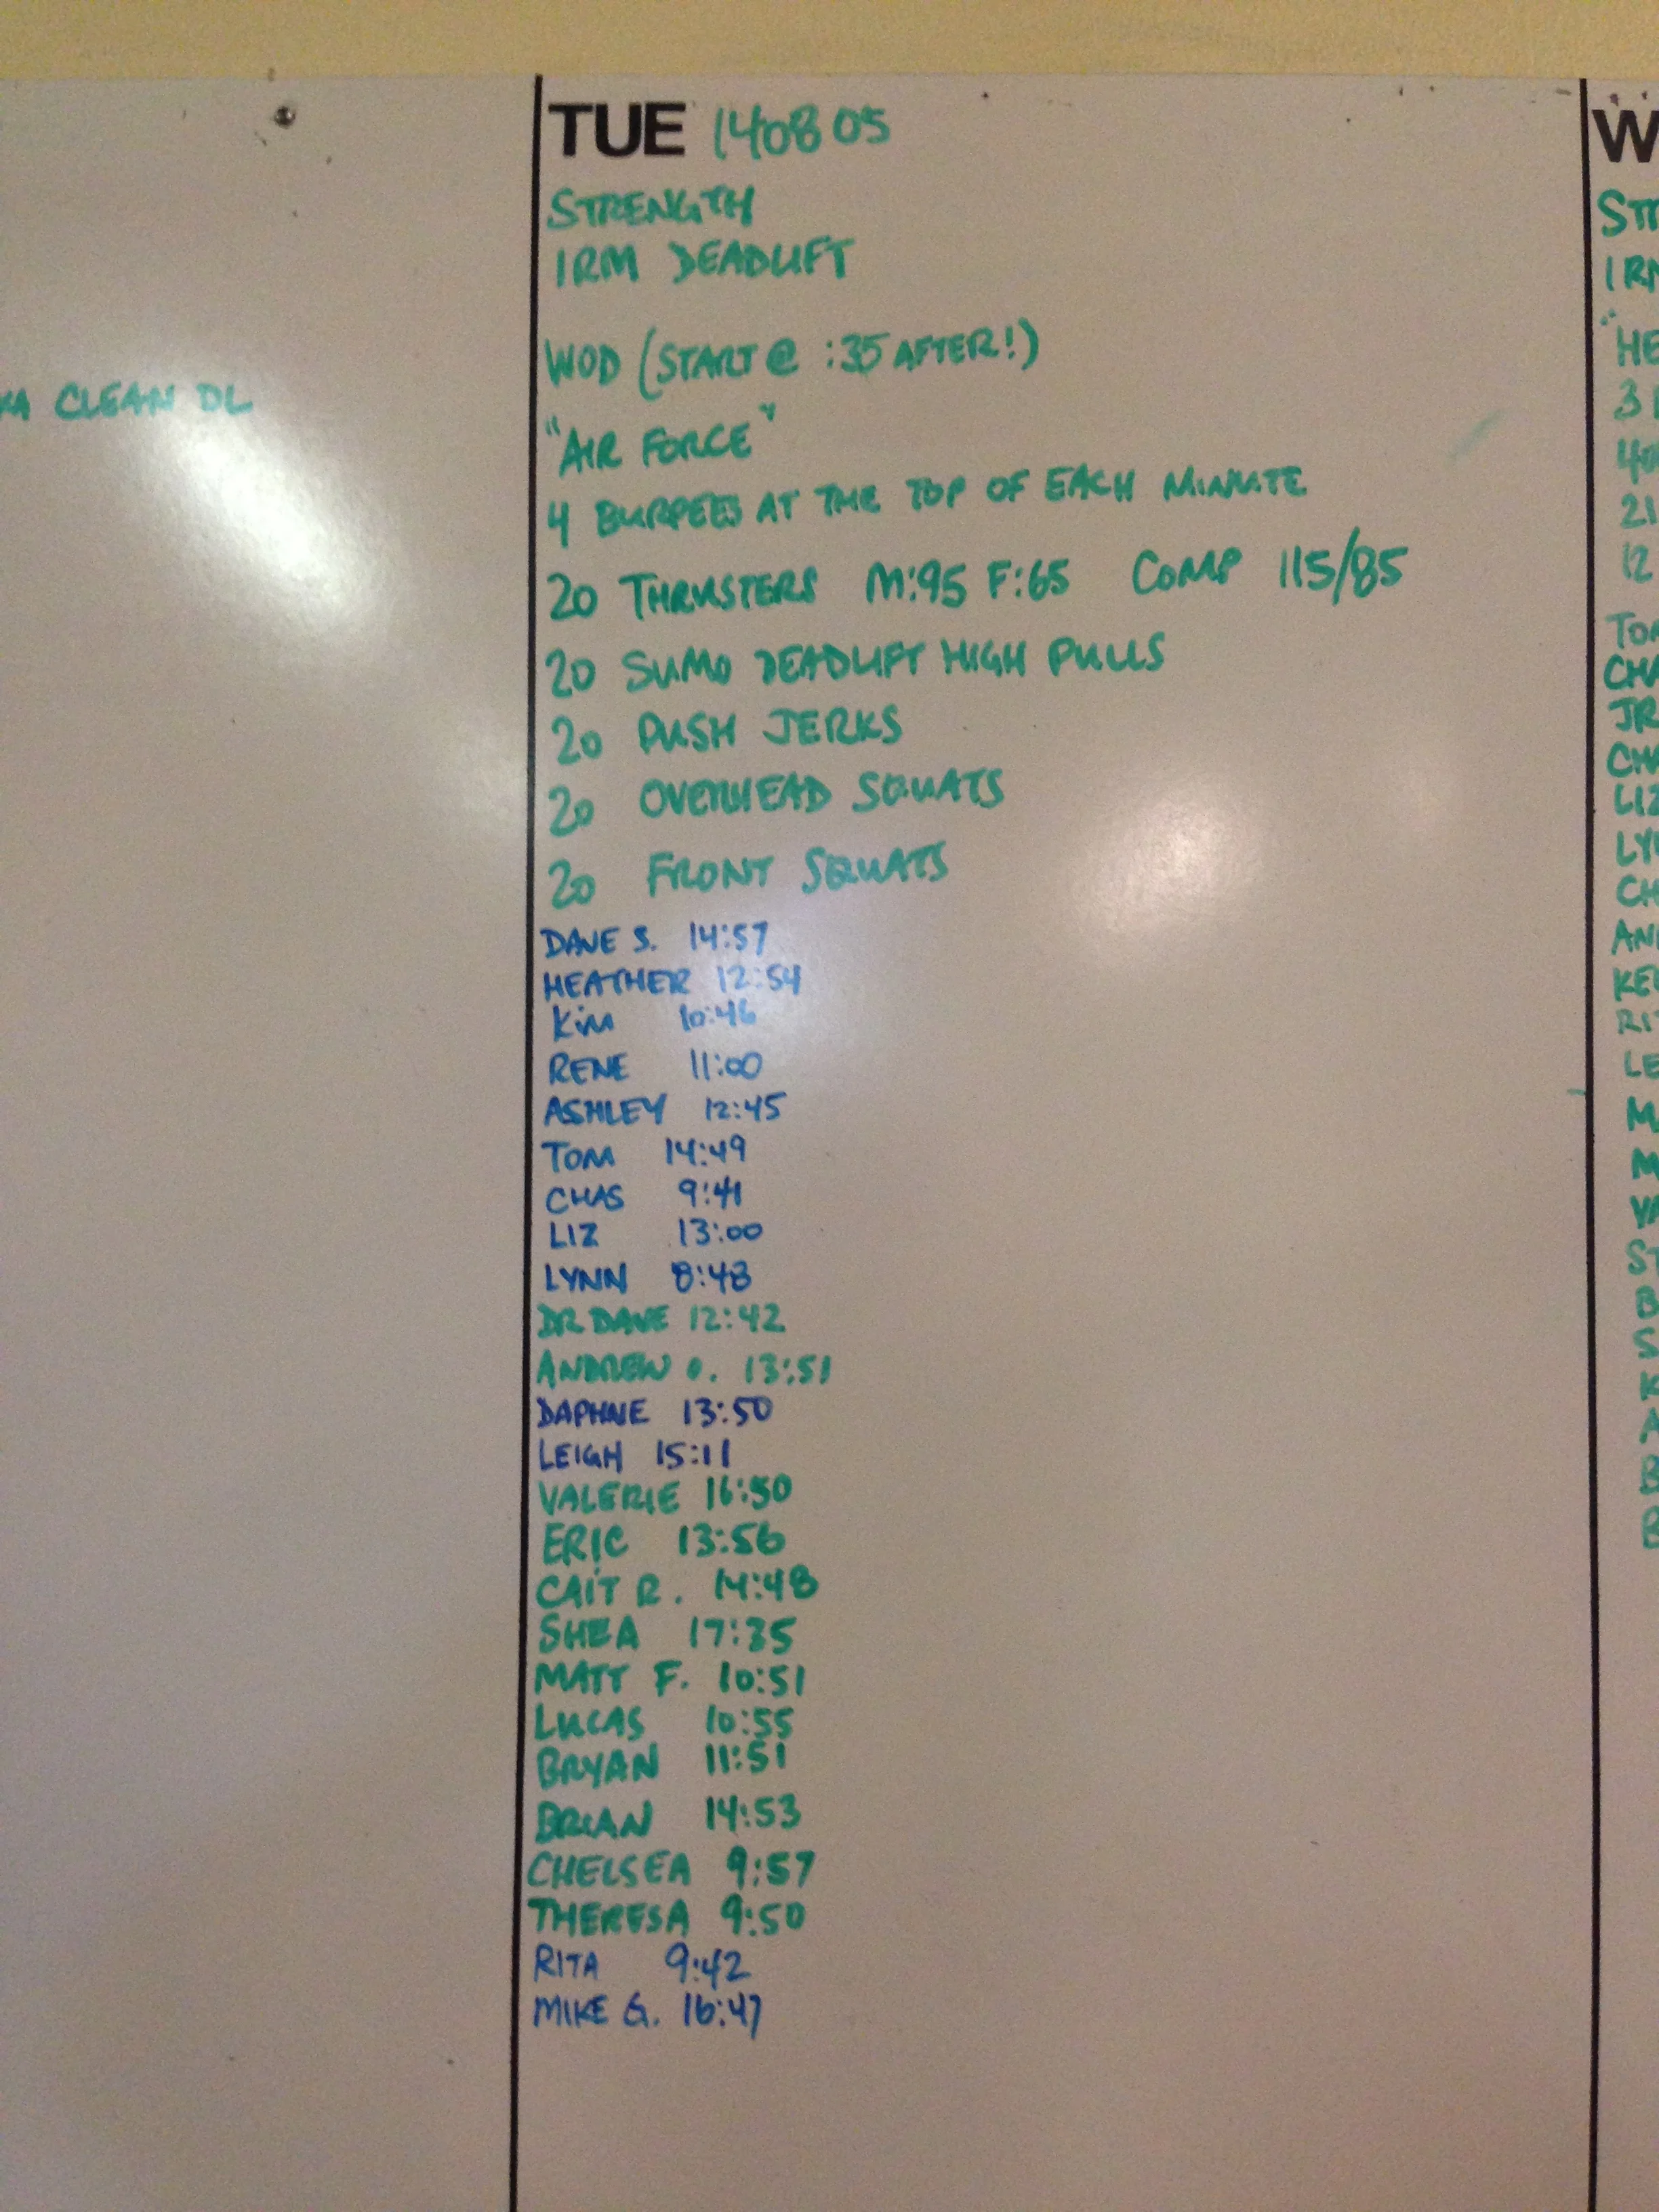 KA CLEAN DL
TUE 140805
STRENGTH
1RM DEADLIFT
WOD (START @ :35 AFTER!)
"AIR FORCE"
4 BURPEES AT THE TOP OF EACH MINUTE
20 THRUSTERS M:95 F:65 COMP 115/85
20 SUMO DEADLIFT HIGH PULLS
20 PUSH JERKS
20 OVERHEAD SQUATS
20 FRONT SQUATS
DAVE S. 14:57
HEATHER 12:54
KiM 10:46
RENE 11:00
ASHLEY 12:45
TOM 14:49
CHAS 9:41
LIZ 13:00
LYNN 8:48
DR DAVE 12:42
ANDREW O. 13:51
DAPHNE 13:50
LEIGH 15:11
VALERIE 16:50
ERIC 13:56
CAIT R. 14:48
SHEA 17:35
MATT F. 10:51
LUCAS 10:55
BRYAN 11:51
BRIAN 14:53
CHELSEA 9:57
THERESA 9:50
RITA 9:42
MIKE G. 16:47
W
STR
1RM
"HE
3
21
12
TOM
CHA
JR
CHA
LIZ
LY
CH
AN
KE
RI
LE
M
M
VA
ST
B
S
K
A
B
B